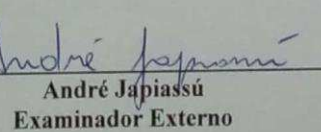 André Japiassú
André Japiassú
Examinador Externo